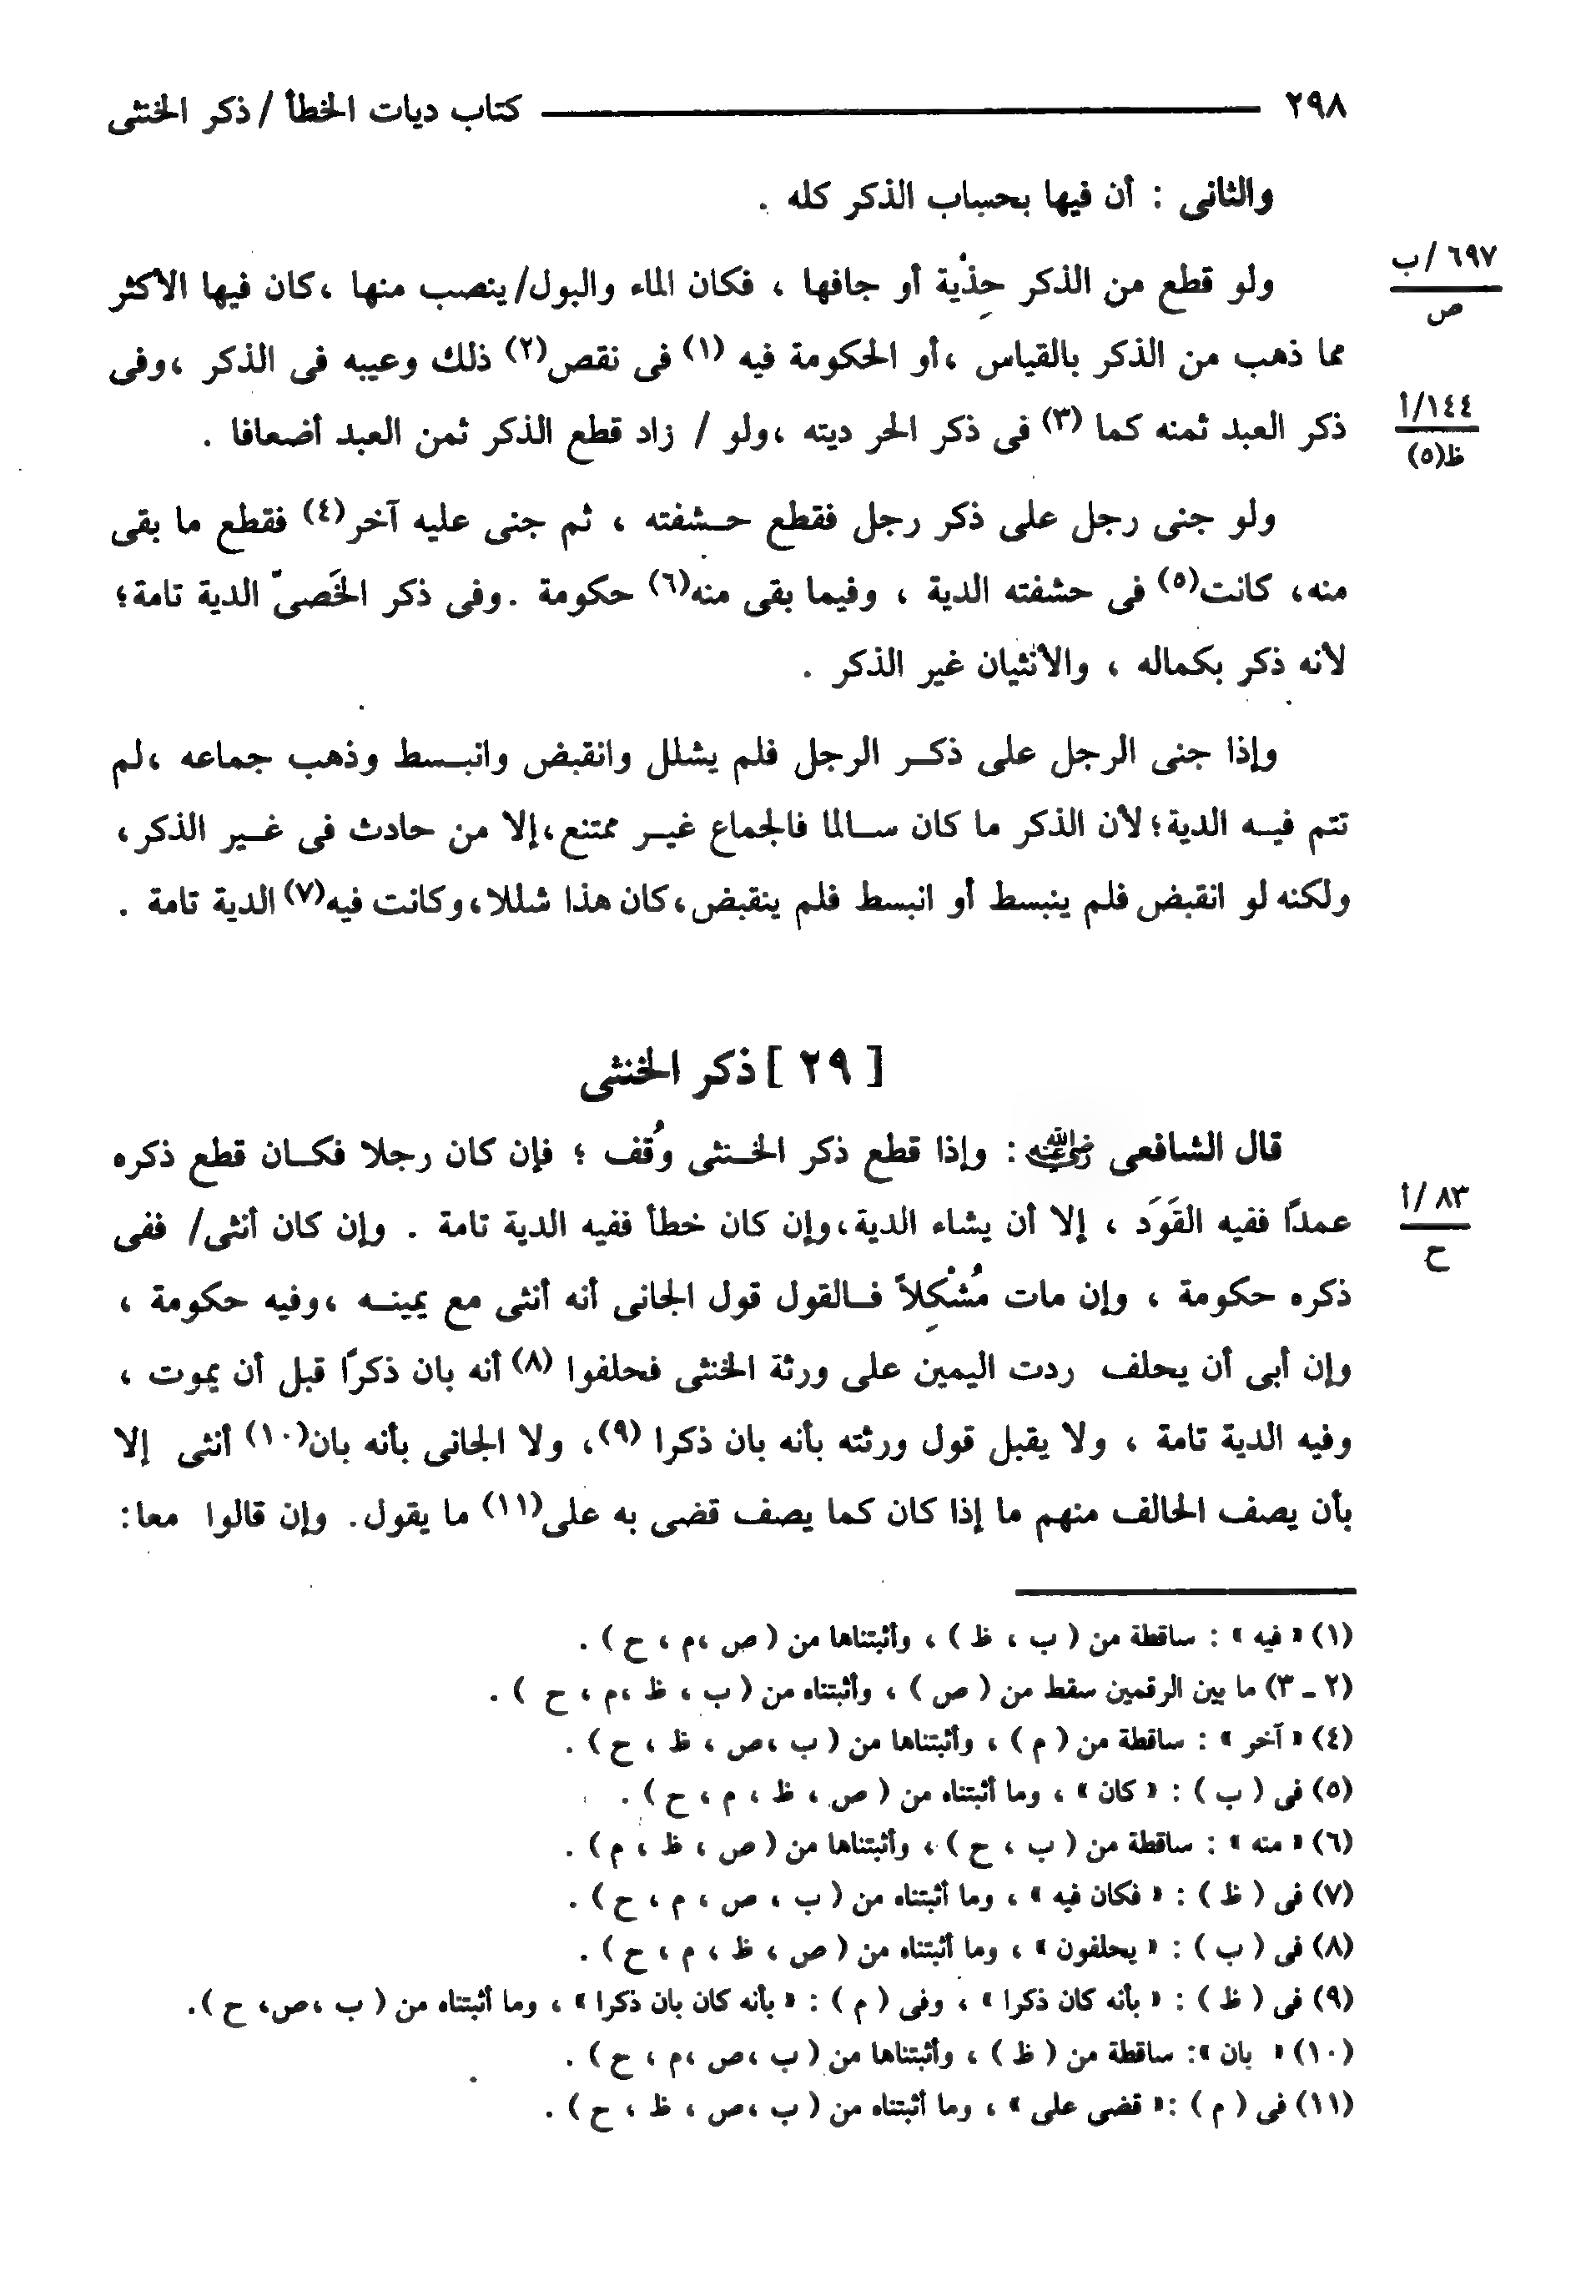 ٢٩٨ ـــــــــ كتاب ديات الخطأ / ذكر الخنثى
والثانى : أن فيها بحساب الذكر كله .
ولو قطع من الذكر حِذْية أو جافها ، فكان الماء والبول/ ينصب منها ،كان فيها الأكثر
٦٩٧ /ب
ص
مما ذهب من الذكر بالقياس ،أو الحكومة فيه (١) فى نقص(٢) ذلك وعيبه فى الذكر ،وفى
ذكر العبد ثمنه كما (٣) فى ذكر الحر ديته ،ولو / زاد قطع الذكر ثمن العبد أضعافا .
١٤٤/أ
ظ(٥)
ولو جنى رجل على ذكر رجل فقطع حـشفته ، ثم جنى عليه آخر(٤) فقطع ما بقى
منه، كانت(٥) فى حشفته الدية ، وفيما بقى منه(٦) حكومة .وفى ذكر الخَصىّ الدية تامة؛
لأنه ذكر بكماله ، والأنثيان غير الذكر .
وإذا جنى الرجل على ذكـر الرجل فلم يشلل وانقبض وانبـسط وذهب جماعه ،لم
تتم فيـه الدية؛ لأن الذكر ما كان سـالما فالجماع غيـر ممتنع،إلا من حادث فى غـير الذكر،
ولكنه لو انقبض فلم ينبسط أو انبسط فلم ينقبض،كان هذا شللا،وكانت فيه(٧) الدية تامة .
[ ٢٩ ] ذكر الخنثى
قال الشافعى رضي الله عنه : وإذا قطع ذكر الخـنثى وُقف ؛ فإن كان رجلا فكـان قطع ذكره
عمدًا ففيه القَوَد ، إلا أن يشاء الدية،وإن كان خطأ ففيه الدية تامة . وإن كان أنثى/ ففى
٨٣ /أ
ح
ذكره حكومة ، وإن مات مُشْكِلاً فـالقول قول الجانى أنه أنثى مع يمينـه ،وفيه حكومة ،
وإن أبى أن يحلف ردت اليمين على ورثة الخنثى فحلفوا (٨) أنه بان ذكرًا قبل أن يموت ،
وفيه الدية تامة ، ولا يقبل قول ورثته بأنه بان ذكرا (٩)، ولا الجانى بأنه بان(١٠) أنثى إلا
بأن يصف الحالف منهم ما إذا كان كما يصف قضى به على(١١) ما يقول. وإن قالوا معا:
(١) « فيه » : ساقطة من ( ب ، ظ ) ، وأثبتناها من ( ص ،م ، ح ) .
(٢ ـ ٣) ما بين الرقمين سقط من ( ص ) ، وأثبتناه من ( ب ، ظ ،م ، ح ) .
(٤) « آخر » : ساقطة من ( م ) ، وأثبتناها من ( ب ،ص ، ظ ، ح ) .
(٥) فى ( ب ) : « كان » ، وما أثبتناه من ( ص ، ظ ، م ، ح ) .
(٦) « منه » : ساقطة من ( ب ، ح ) ، وأثبتناها من ( ص ، ظ ، م ) .
(٧) فى ( ظ ) : « فكان فيه » ، وما أثبتناه من ( ب ، ص ، م ، ح ) .
(٨) فى ( ب ) : « يحلفون » ، وما أثبتناه من ( ص ، ظ ، م ، ح ) .
(٩) فى ( ظ ) : « بأنه كان ذكرا » ، وفى ( م ) : « بأنه كان بان ذكرا » ، وما أثبتناه من ( ب ،ص، ح ).
(١٠) « بان »: ساقطة من ( ظ ) ، وأثبتناها من ( ب ،ص ،م ، ح ) .
(١١) فى ( م ) :« قضى على » ، وما أثبتناه من ( ب ،ص ، ظ ، ح ) .